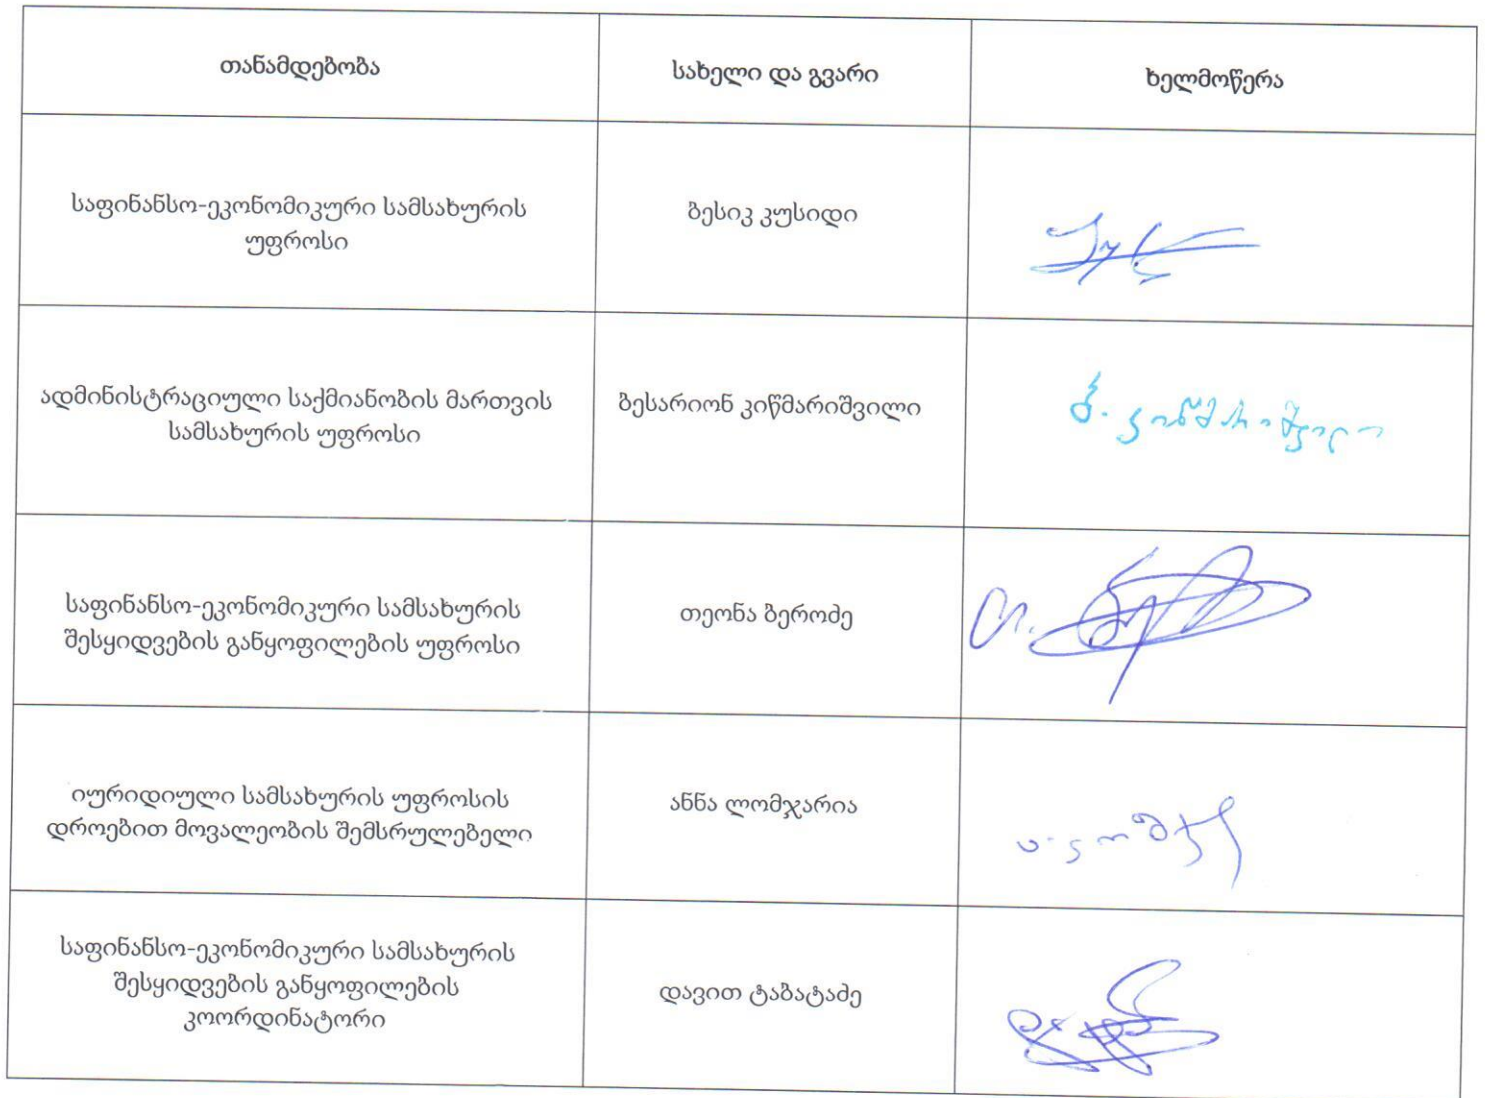 თანამდებობა
სახელი და გვარი
ხელმოწერა
საფინანსო-ეკონომიკური სამსახურის
უფროსი
ბესიკ კუსიდი
ადმინისტრაციული საქმიანობის მართვის
სამსახურის უფროსი
ბესარიონ კიწმარიშვილი
ბ. კიწმარიშვილი
საფინანსო-ეკონომიკური სამსახურის
შესყიდვების განყოფილების უფროსი
თეონა ბეროძე
იურიდიული სამსახურის უფროსის
დროებით მოვალეობის შემსრულებელი
ანნა ლომჯარია
საფინანსო-ეკონომიკური სამსახურის
შესყიდვების განყოფილების
კოორდინატორი
დავით ტაბატაძე